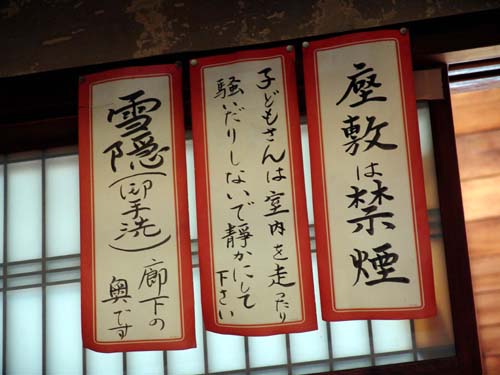 座敷は禁煙
子どもさんは室内を走ったり
騒いだりしないで静かにして
下さい
雪隠(御手洗)
廊下の
奥です